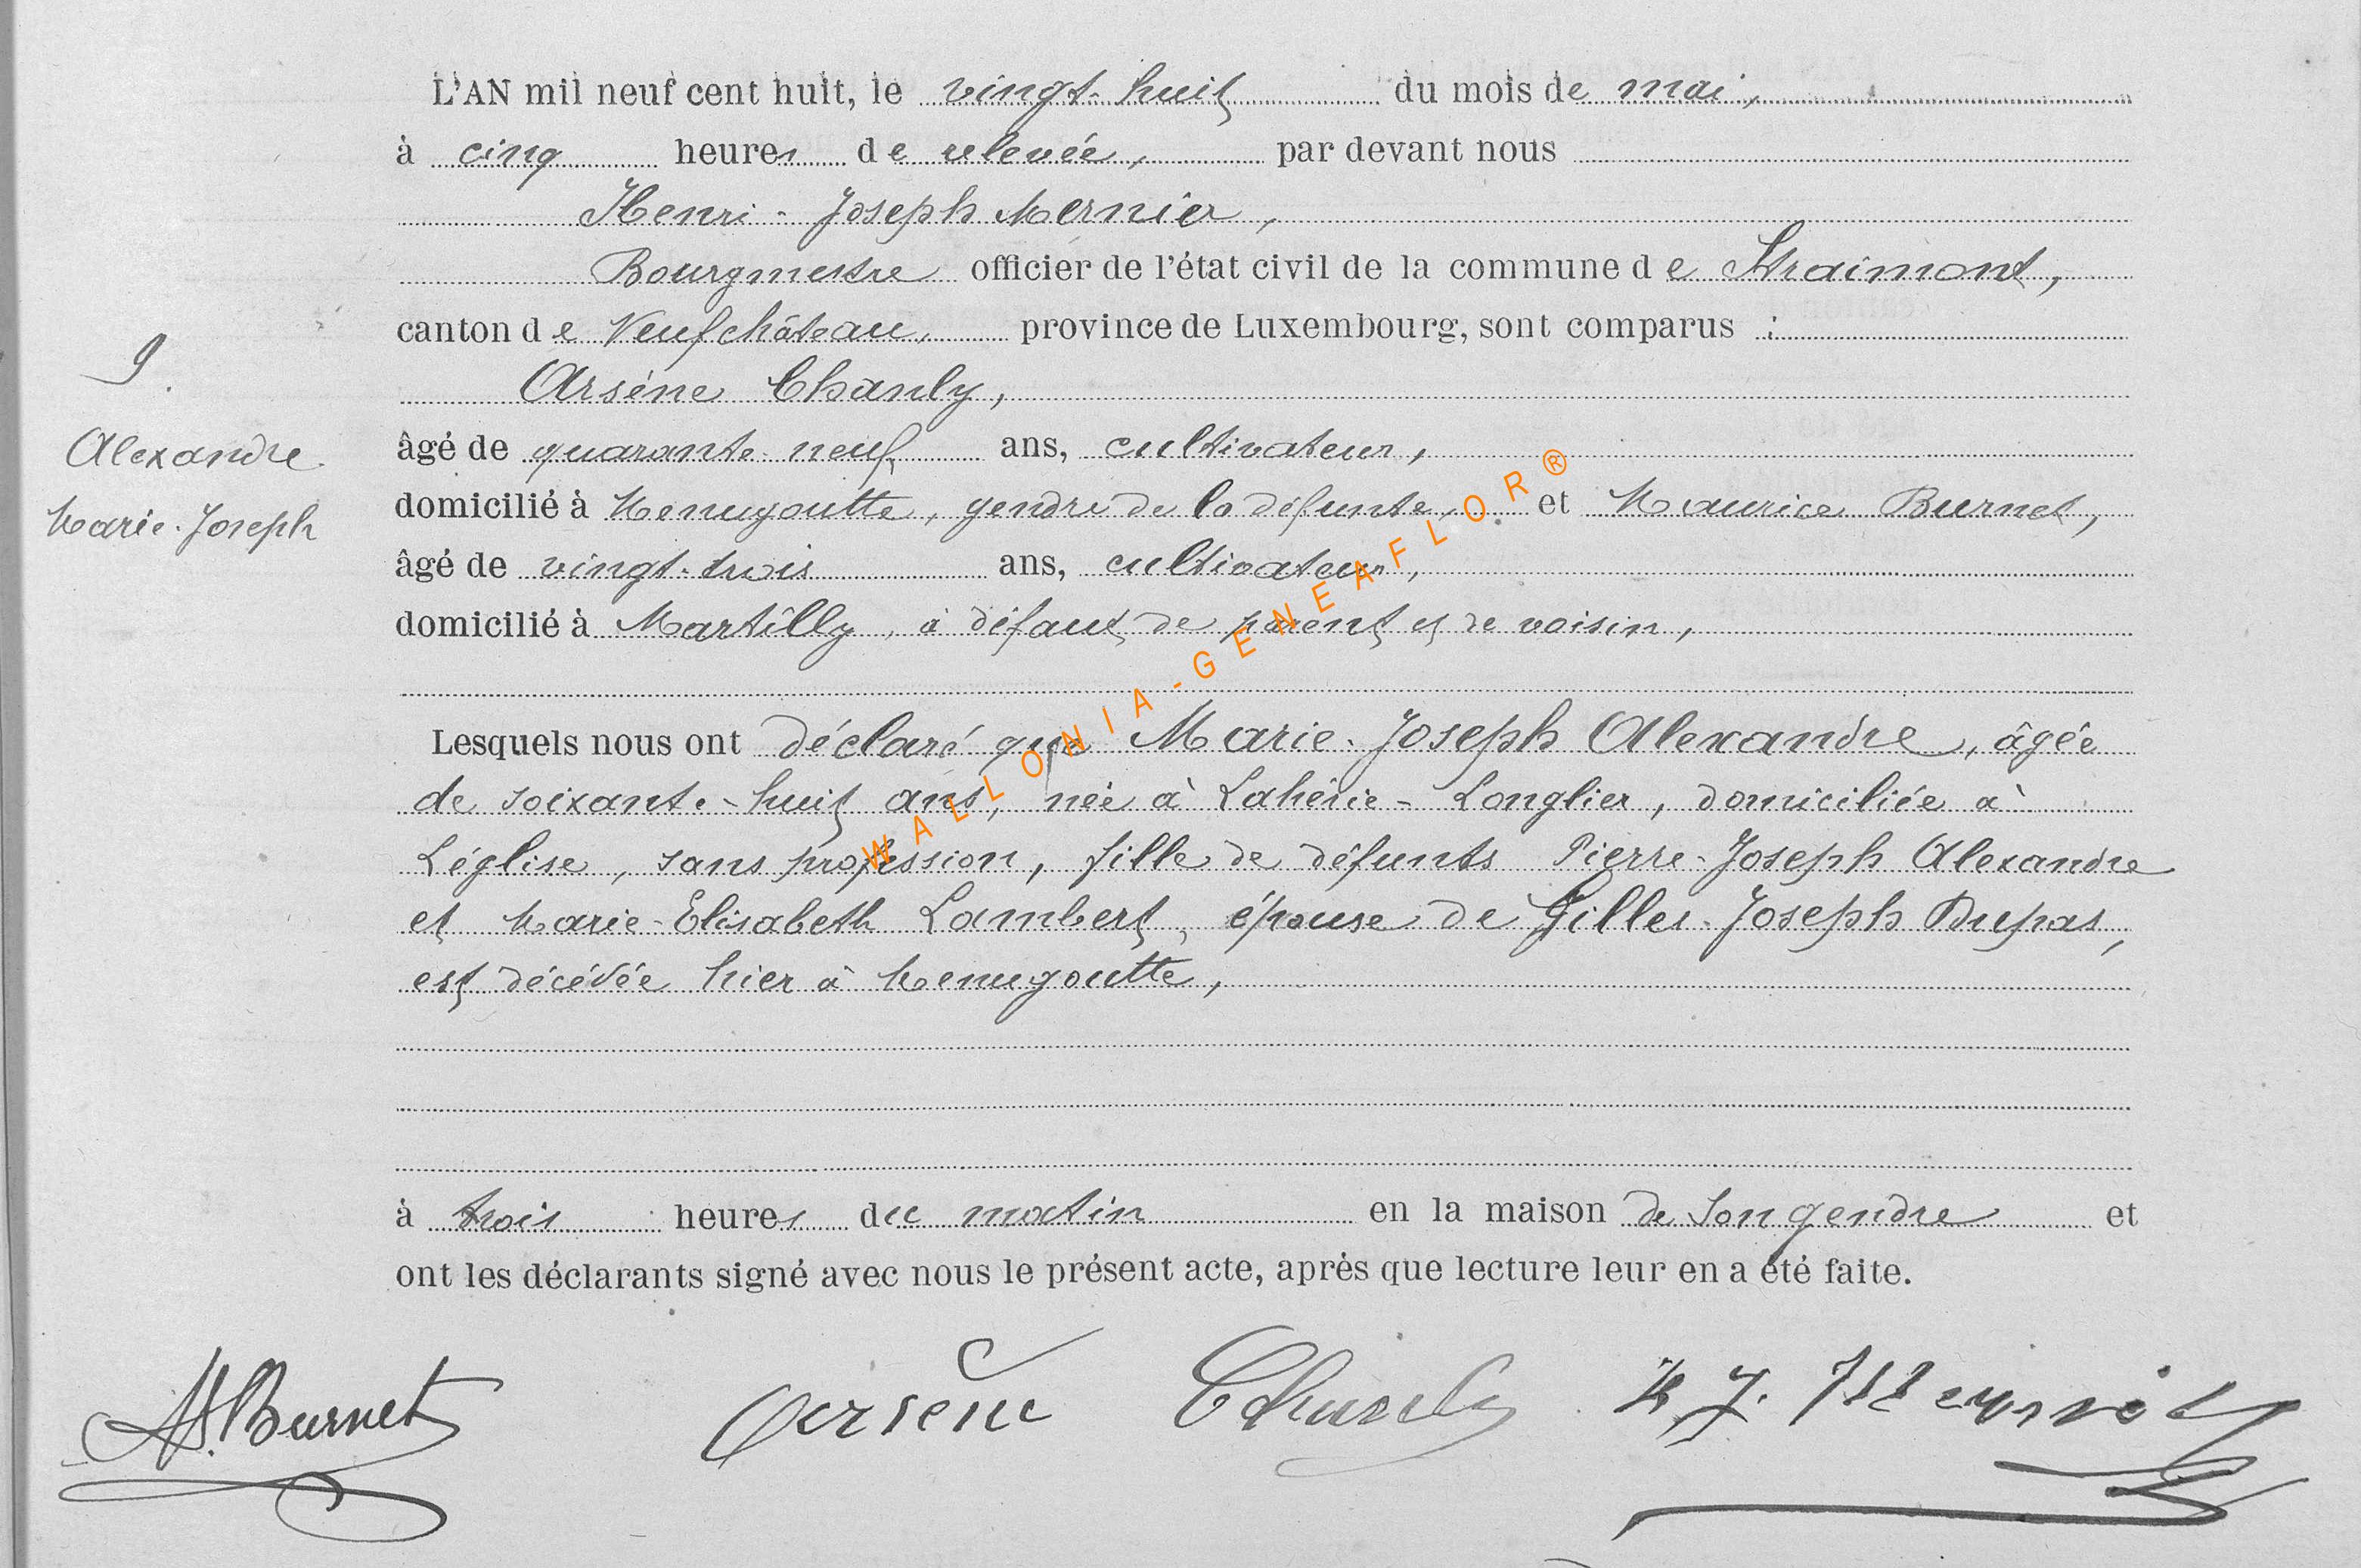 L'AN mil neuf cent huit, le vingt-huit du mois de mai,
à cinq heures de relevée, par devant nous
Henri-Joseph Mernier,
Bourgmestre officier de l'état civil de la commune de Straimont,
canton de Neufchâteau, province de Luxembourg, sont comparus :
9.
Arsène Chanly,
Alexandre
âgé de quarante-neuf ans, cultivateur,
Marie-Joseph
domicilié à Menugoutte, gendre de la défunte, et Maurice Burnet,
âgé de vingt-trois ans, cultivateur,
domicilié à Martilly, à défaut de parent et de voisin,
WALLONIA-GENEAFLOR®
Lesquels nous ont déclaré que Marie-Joseph Alexandre, âgée
de soixante-huit ans, née à Lahérie-Longlier, domiciliée à
Léglise, sans profession, fille de défunts Pierre-Joseph Alexandre
et Marie-Elisabeth Lambert, épouse de Gilles-Joseph Dupas,
est décédée hier à Menugoutte,
à trois heures du matin en la maison de son gendre et
ont les déclarants signé avec nous le présent acte, après que lecture leur en a été faite.
M. Burnet Arsène Chanly H J. Mernier